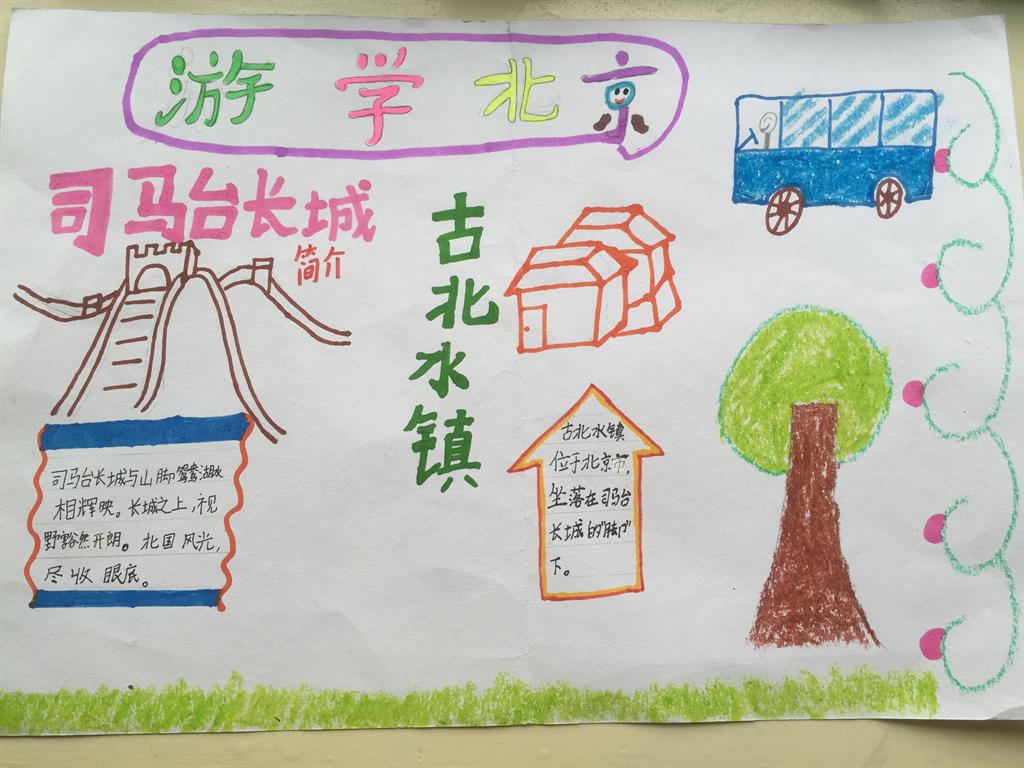 游学北京
司马台长城
简介
司马台长城与山脚鸳鸯湖水
相辉映。长城之上,视
野豁然开朗。北国风光,
尽收眼底。
古北水镇
古北水镇
位于北京市,
坐落在司马台
长城的"脚"
下。